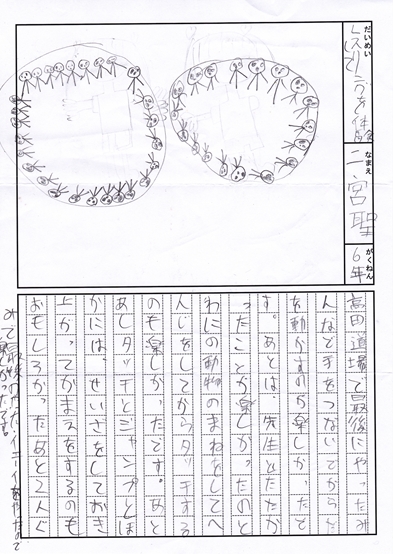 だいめい
レスリングを体験
して
なまえ
二宮聖
がくねん
6年
高田道場で最後にやったみ
んなで手をつないでからだ
を動かすのが楽しかったで
す。あとは、先生とたたか
ったことが楽しかったのと
わにの動物のまねをしてへ
んじをしてからタッチする
のも楽しかったです。あと
あしタッチとジャンプとほ
かには、せいざをしておき
上がってかまえをするのも
おもしろかったあと2人ぐ
みで最後のやったイエーイをやったので
かったです。